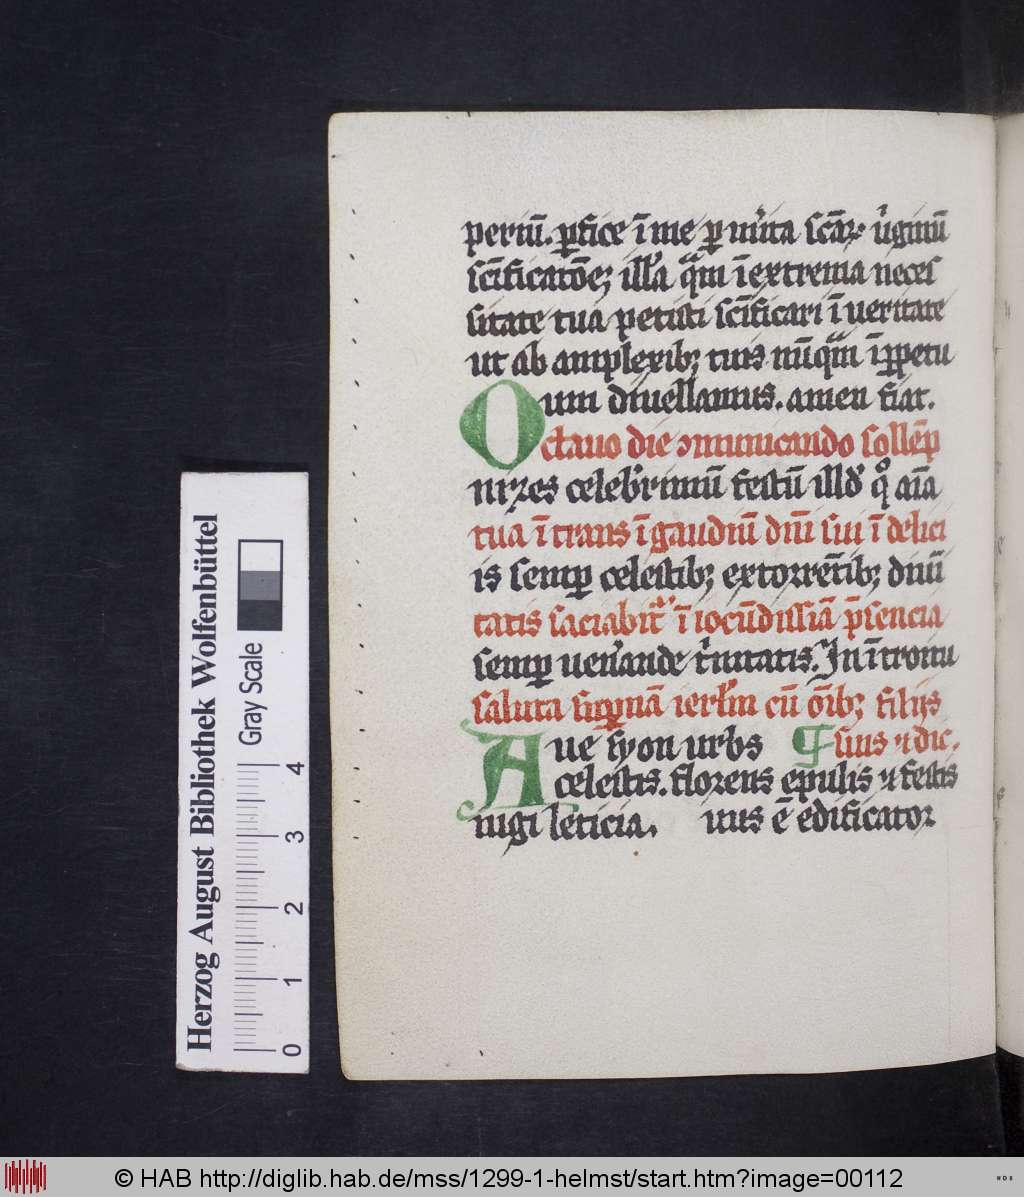 periū. ꝑfice ī me ꝑ mͥita sc̄aꝝ v̓ginū
sc̄ificatōeꝫ illa qͣm ī extrema neces
sitate tua petisti sc̄ificari ī veritate
ut ab amplexibꝫ tuis nūqͣm īꝑpetu
um diuellamus. amen fiat.
Octauo die ꝯmunicando sollēp
nizes celebrimū festū illd̓ qͦ aīa
tua ī trans ī gaudiū dn̄i sui ī delici
is semꝑ celestibꝫ ex torrētibꝫ diuī
tatis saciabit̓ ī iocūdissīa p̄sencia
semꝑ uen̓ande tͥnitatis. In ītroitu
saluta suꝑnā ierl̓m cū oībꝫ filijs
Aue syon urbs ¶ suis ⁊ dic.
celestis. florens epulis ⁊ festis
iugi leticia. uus ē edificator
Herzog August Bibliothek Wolfenbüttel
Gray Scale
0 1 2 3 4
© HAB http://diglib.hab.de/mss/1299-1-helmst/start.htm?image=00112